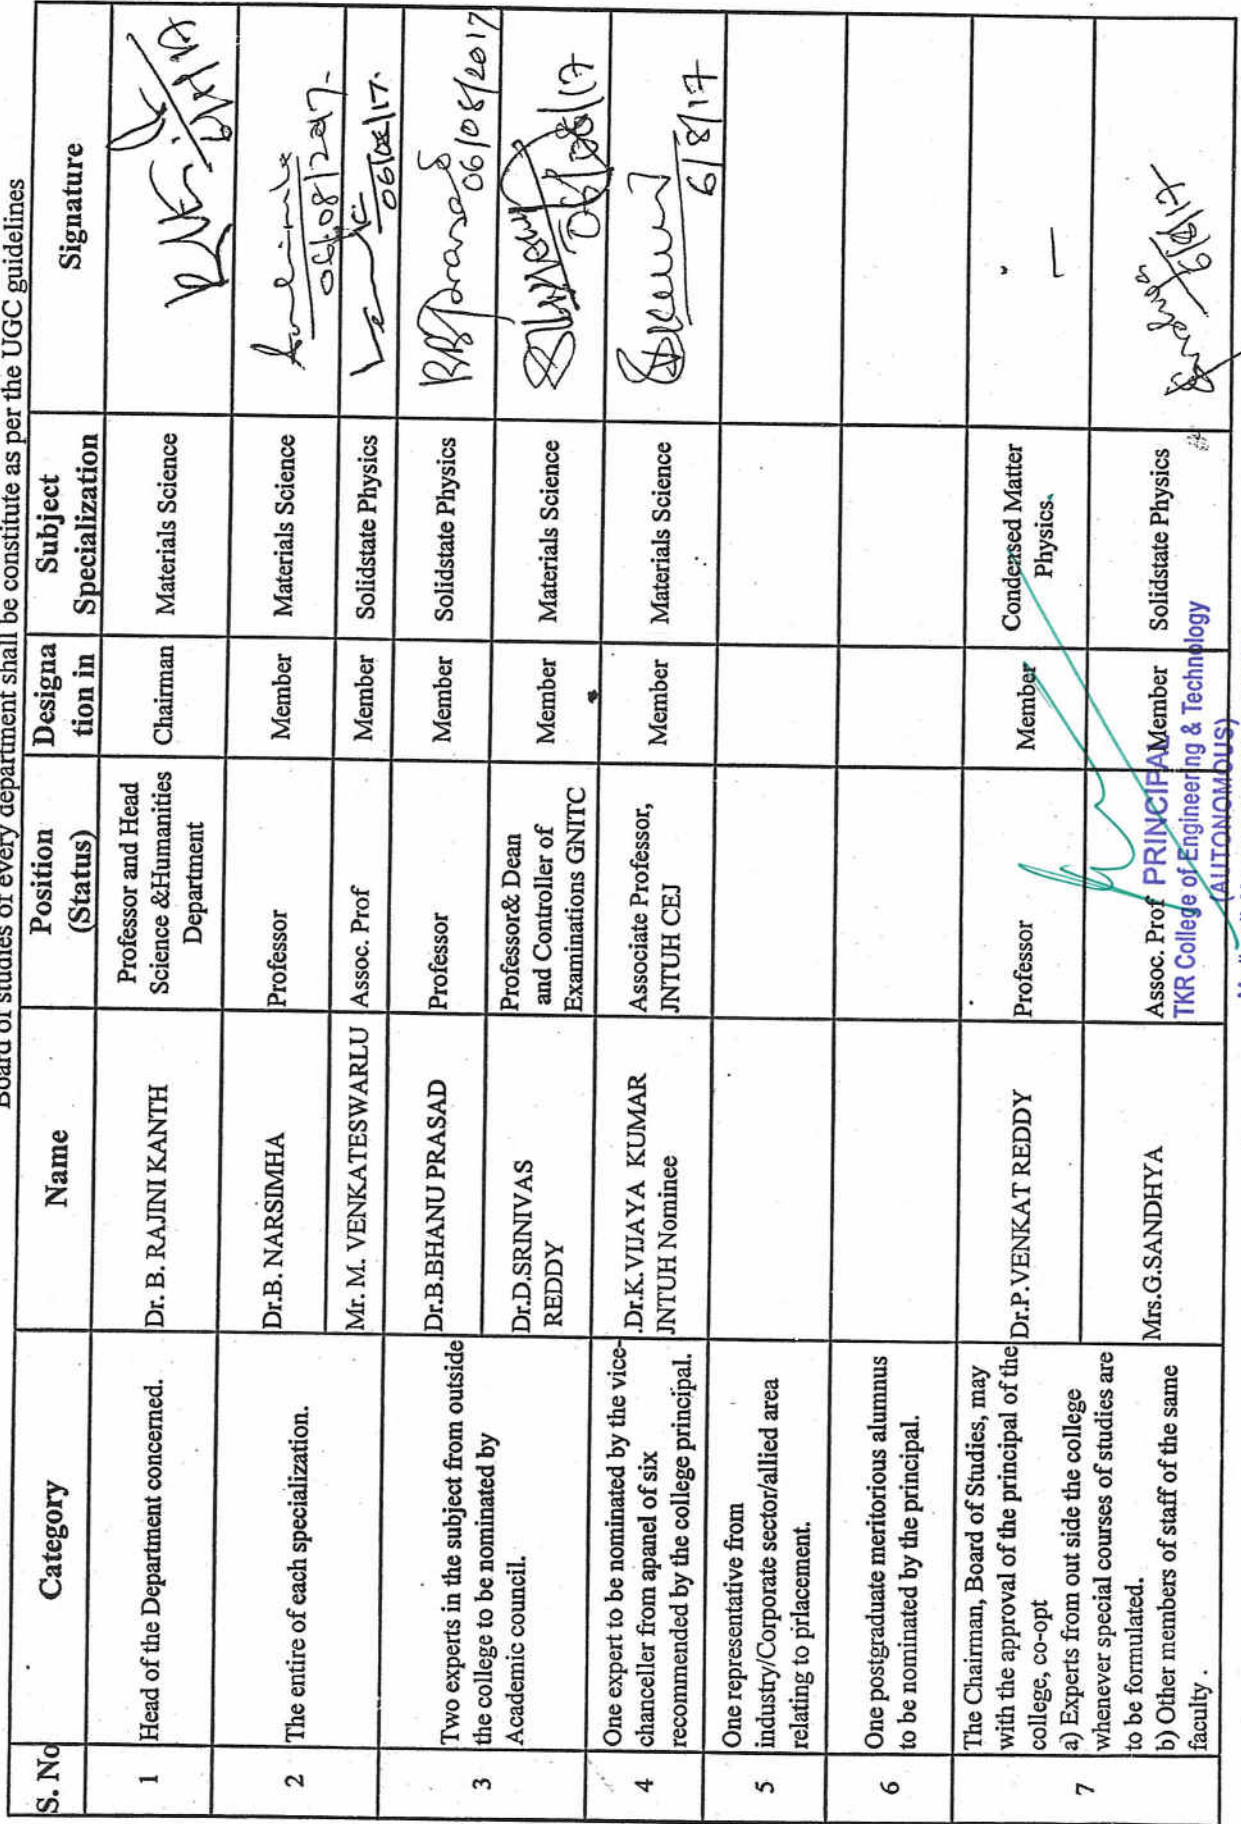 Board of studies of every department shall be constitute as per the UGC guidelines
S. No
Category
Name
Position
(Status)
Designa
tion in
Subject
Specialization
Signature
1
Head of the Department concerned.
Dr. B. RAJINI KANTH
Professor and Head
Science &Humanities
Department
Chairman
Materials Science
2
The entire of each specialization.
Dr.B. NARSIMHA
Professor
Member
Materials Science
06/08/2017.
Mr. M. VENKATESWARLU
Assoc. Prof
Member
Solidstate Physics
06/08/17.
3
Two experts in the subject from outside
the college to be nominated by
Academic council.
Dr.B.BHANU PRASAD
Professor
Member
Solidstate Physics
06/08/2017
Dr.D.SRINIVAS
REDDY
Professor& Dean
and Controller of
Examinations GNITC
Member
Materials Science
06/08/17
4
One expert to be nominated by the vice-
chanceller from apanel of six
recommended by the college principal.
.Dr.K.VIJAYA KUMAR
JNTUH Nominee
Associate Professor,
JNTUH CEJ
Member
Materials Science
6/8/17
5
One representative from
industry/Corporate sector/allied area
relating to prlacement.
6
One postgraduate meritorious alumnus
to be nominated by the principal.
7
The Chairman, Board of Studies, may
with the approval of the principal of the
college, co-opt
a) Experts from out side the college
whenever special courses of studies are
to be formulated.
b) Other members of staff of the same
faculty .
Dr.P.VENKAT REDDY
Professor
Member
Condensed Matter
Physics.
—
Mrs.G.SANDHYA
Assoc. Prof
Member
Solidstate Physics
6/8/17
PRINCIPAL
TKR College of Engineering & Technology
(AUTONOMOUS)